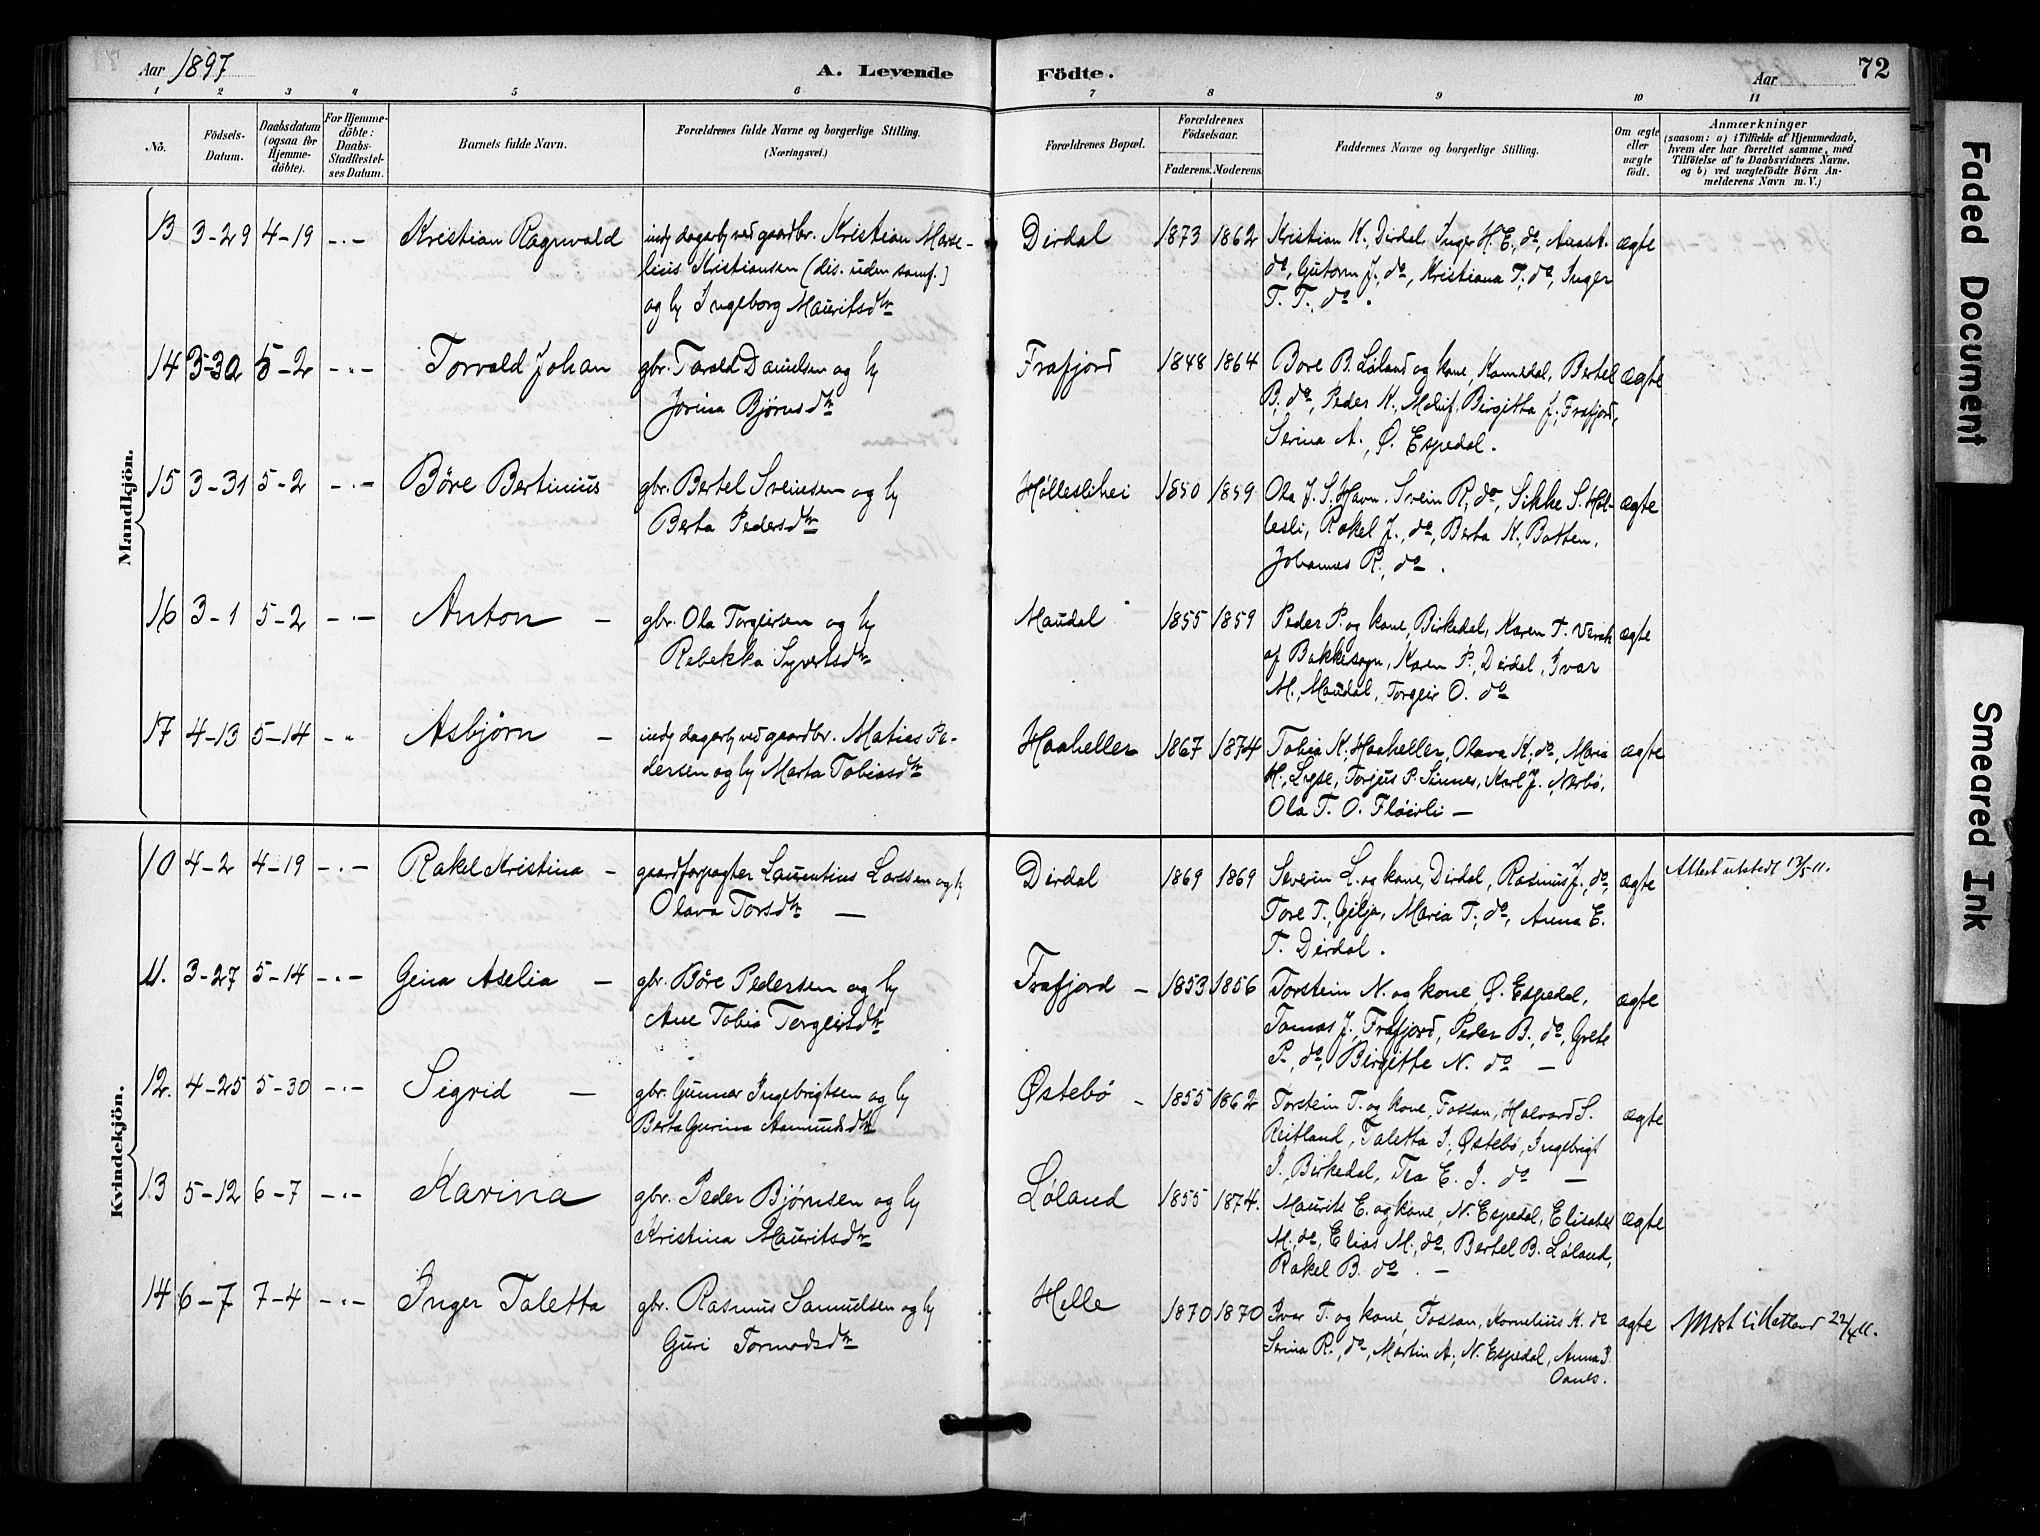 Aar 1897
A. Levende
Födte.
Aar
72
1 2 3 4 5 6 7 8 9 10 11
No.
Födsels-Datum.
Daabsdatum (ogsaa for Hjemmedöbte).
For Hjemmedöbte: Daabs-Stadfæstelses Datum.
Barnets fulde Navn.
Forældrenes fulde Navne og borgerlige Stilling. (Næringsvei.)
Forældrenes Bopæl.
Forældrenes Födselsaar.
Faderens. Moderens.
Faddernes Navne og borgerlige Stilling.
Om ægte eller uægte födt.
Anmærkninger
(saasom: a) i Tilfælde af Hjemmedaab, hvem der har forrettet samme, med Tilföielse af to Daabsvidners Navne. og b) ved uægtefödte Börn Anmelderens Navn m. V.)
Mandkjön.
13 3-29 4-19 -"- Kristian Ragnvald indg dagarb ved gaardbr. Kristian Marse- Dirdal 1873 1862 Kristian K. Dirdal, Inger H. E. do, ægte
lius Kristiansen (dis. uden samf.) do, Gutorm J. do, Kristiana T. do, Inger
og hu Ingeborg Mauritsdtr T. T. do.
14 3-30 5-2 -"- Torvald Johan gbr. Tarald Danielsen og hu Frafjord 1848 1864 Bore B. Løland og kone, Bertel ægte
Jorina Bjørnsdtr B. do, Peder K. Molaug, Birgitta J. Frafjord,
Serina A. Ø. Espedal.
15 3-31 5-2 -"- Böre Bertinius gbr. Bertel Sveinsen og hu Hølleslihei 1850 1859 Ola J. S. Havn. Svein R. do, Sikke S. Høl- ægte
Berta Pedersdtr lesli, Rakel J. do, Berta K. Batten.
Johannes R. do.
16 3-1 5-2 -"- Anton - gbr. Ola Torgiersen og hu Maudal 1855 1859 Peder P. og kone, Birkedal, Karen T. ægte
Rebekka Syvertsdtr af Bakkesogn, Karen P. Dirdal, Ivar
M. Maudal, Torgeir O. do
17 4-13 5-14 -"- Asbjørn - indg dagarb ved gaardbr. Matias Pe- Haaheller 1867 1874 Tobia K. Haaheller, Olava K. do, Maria ægte
dersen og hu Marta Tobiasdtr H. Lyse, Torjus P. Sinnes, Karl J. Nærbø,
Ola T. O. Fløirli -
Kvindekjön.
10 4-2 4-19 -"- Rakel Kristina - gaardforpagter Laurentius Larsen og hu Dirdal 1869 1869 Severin L. og kone, Dirdal, Rasmus J. do, ægte Attest utstedt 13/5 11.
Olava Torsdtr - Tore T. Gilja, Maria T. do, Anna E.
T. Dirdal.
11. 3-27 5-14 -"- Gina Aselia - gbr. Böre Pedersen og hu Frafjord - 1853 1856 Torstein N. og kone Ø. Espedal, ægte
Ane Tobia Torgiersdtr Tomas J. Frafjord, Peder B. do, Grete
P. do, Birgitte N. do -
12. 4-25 5-30 -"- Sigrid - gbr. Gunnar Ingebrigtsen og hu Østebø - 1855 1862 Torstein T. og kone, Fossan, Halvard S. ægte
Berta Gurina Aamundsdtr Reitland, Taletta I. Østebø, Ingebrigt
I. Birkedal, Tea E. I. do -
13 5-12 6-7 -"- Karina gbr. Peder Bjørnsen og hu Løland 1855 1874. Maurits E. og kone, N. Espedal, Elisabet ægte
Kristina Mauritsdtr M. do, Elias M. do, Bertel B. Løland,
Rakel B. do. -
14 6-7 7-4 -"- Inger Taletta gbr. Rasmus Samuelsen og hu Helle 1870 1870 Ivar T. og kone, Fossan, Kornelius K. do ægte 22/4 11.
Guri Tormodsdtr Serina R. do, Martin A. N. Espedal, Anna I.
Oanes.
Faded Document
Smeared Ink